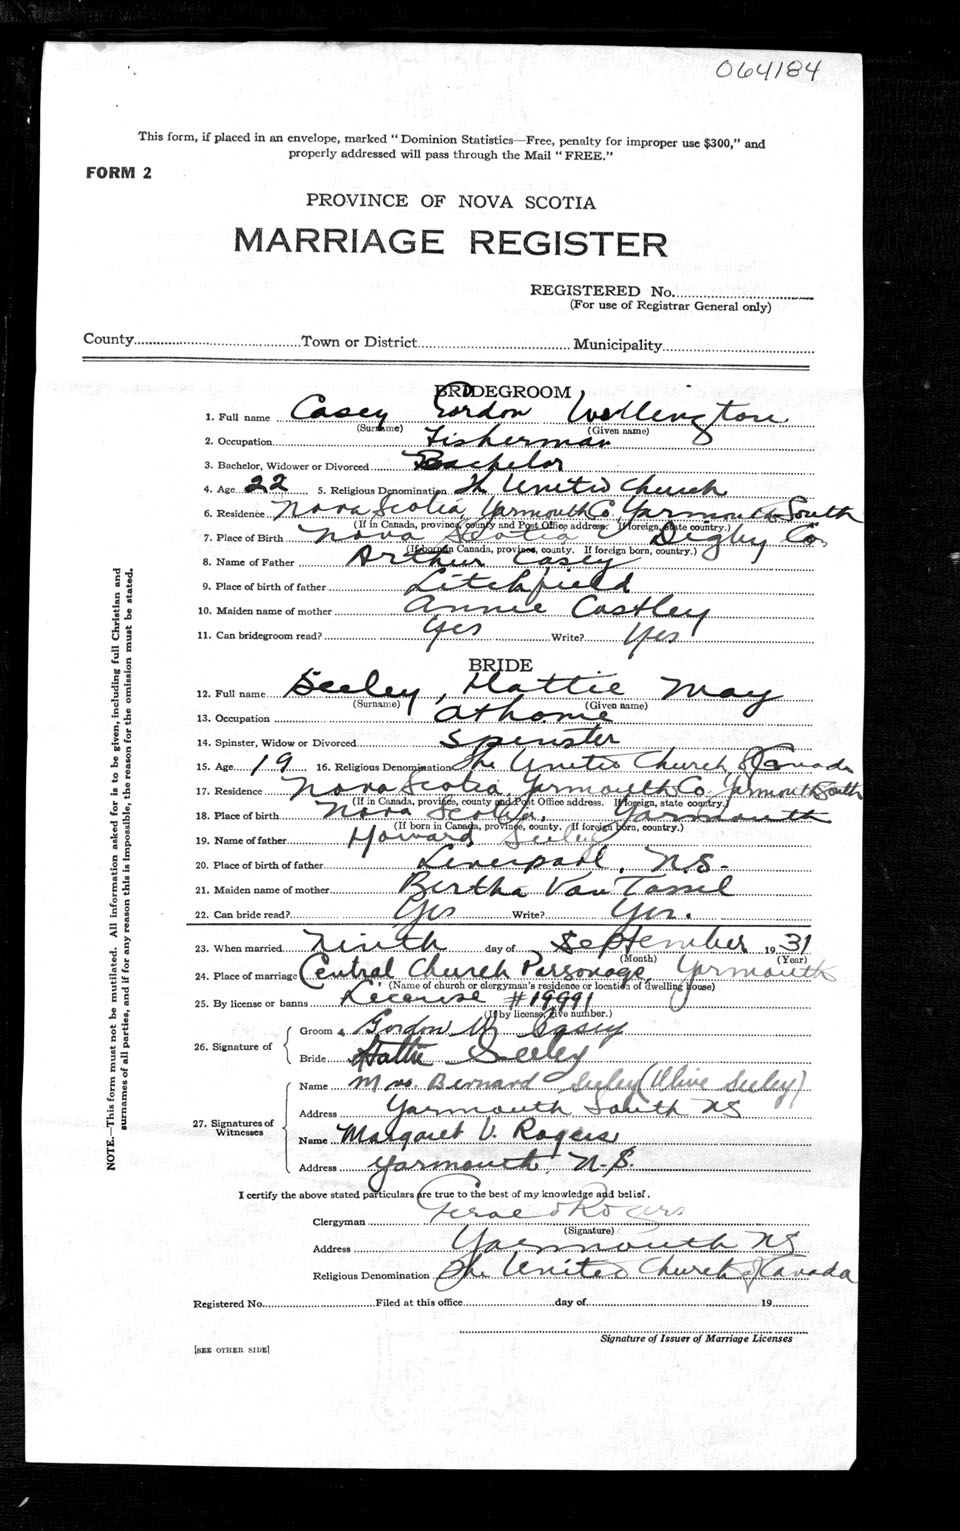 064184
This form, if placed in an envelope, marked "Dominion Statistics—Free, penalty for improper use $300," and
properly addressed will pass through the Mail "FREE."
FORM 2
PROVINCE OF NOVA SCOTIA
MARRIAGE REGISTER
REGISTERED No.
(For use of Registrar General only)
County Town or District Municipality
BRIDEGROOM
1. Full name Casey Gordon Wellington
(Surname) (Given name)
2. Occupation Fisherman
3. Bachelor, Widower or Divorced Bachelor
4. Age 22 5. Religious Denomination The United Church
6. Residence Nova Scotia, Yarmouth Co, Yarmouth South
(If in Canada, province, county and Post Office address. If foreign, state country.)
7. Place of Birth Nova Scotia Digby Co.
(If born in Canada, province, county. If foreign born, country.)
8. Name of Father Arthur Casey
9. Place of birth of father Litchfield
10. Maiden name of mother Annie Costley
11. Can bridegroom read? Yes Write? Yes
BRIDE
12. Full name Seeley, Hattie May
(Surname) (Given name)
13. Occupation at home
14. Spinster, Widow or Divorced Spinster
15. Age 19 16. Religious Denomination The United Church of Canada
17. Residence Nova Scotia, Yarmouth Co, Yarmouth South
(If in Canada, province, county and Post Office address. If foreign, state country.)
18. Place of birth Nova Scotia, Yarmouth
(If born in Canada, province, county. If foreign born, country.)
19. Name of father Howard Seeley
20. Place of birth of father Liverpool, N.S.
21. Maiden name of mother Bertha Van Tassel
22. Can bride read? Yes Write? Yes.
23. When married Ninth day of September 1931
(Month) (Year)
24. Place of marriage Central Church Parsonage, Yarmouth
(Name of church or clergyman's residence or location of dwelling house)
25. By license or banns License #19991
(If by license, give number.)
26. Signature of
Groom Gordon W Casey
Bride Hattie Seeley
27. Signatures of Witnesses
Name Mrs. Bernard Seeley (Olive Seeley)
Address Yarmouth South NS
Name Margaret V. Rogers
Address Yarmouth, N.S.
I certify the above stated particulars are true to the best of my knowledge and belief.
Clergyman Rogers
(Signature)
Address Yarmouth NS
Religious Denomination The United Church of Canada
Registered No. Filed at this office day of 19
Signature of Issuer of Marriage Licenses
[SEE OTHER SIDE]
NOTE.—This form must not be mutilated. All information asked for is to be given, including full Christian and
surnames of all parties, and if for any reason this is impossible, the reason for the omission must be stated.